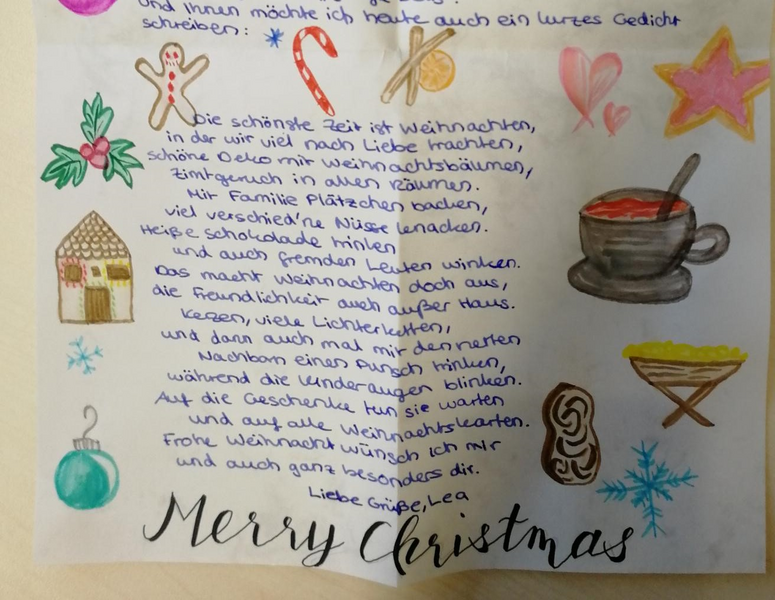 und Ihnen möchte ich heute auch ein kurzes Gedicht
schreiben:
Die schönste Zeit ist Weihnachten,
in der wir viel nach Liebe trachten,
schöne Deko mit Weihnachtsbäumen,
Zimtgeruch in allen Räumen.
Mit Familie Plätzchen backen,
viel verschied'ne Nüsse knacken.
Heiße Schokolade trinken
und auch fremden Leuten winken.
Das macht Weihnachten doch aus,
die Freundlichkeit auch außer Haus.
Kerzen, viele Lichterketten,
und dann auch mal mit den netten
Nachbarn einen Punsch trinken,
während die Kinderaugen blinken.
Auf die Geschenke tun sie warten
und auf alle Weihnachtskarten.
Frohe Weihnacht wünsch ich mir
und auch ganz besonders dir.
Liebe Grüße, Lea
Merry Christmas